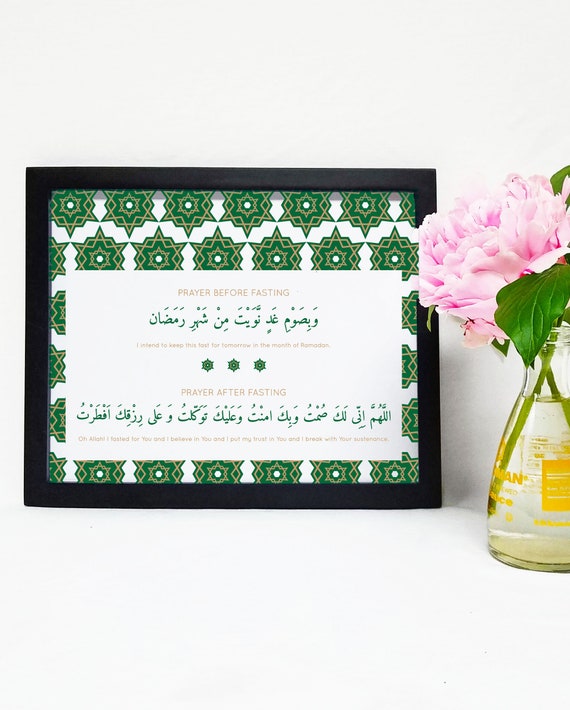 PRAYER BEFORE FASTING
وَبِصَوْمِ غَدٍ نَّوَيْتَ مِنْ شَهْرِ رَمَضَان
I intend to keep this fast for tomorrow in the month of Ramadan.
PRAYER AFTER FASTING
اللَّهُمَّ اِنِّى لَكَ صُمْتُ وَبِكَ امنْتُ وَعَلَيْكَ تَوَكَّلتُ وَ عَلى رِزْقِكَ اَفْطَرْتُ
Oh Allah! I fasted for You and I believe in You and I put my trust in You and I break with Your sustenance.